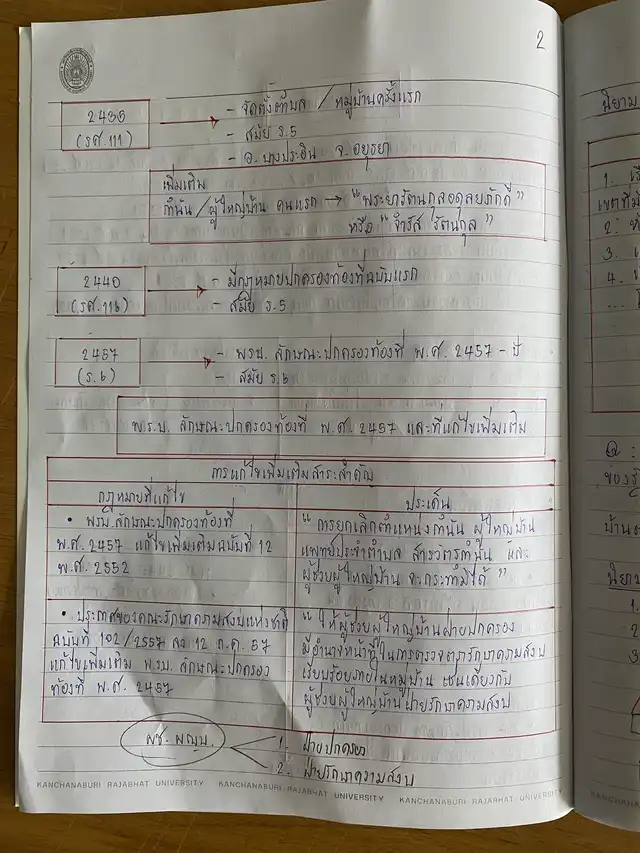 2
2435
(รศ.111)
- จัดตั้งตำบล / หมู่บ้านครั้งแรก
- สมัย ร.5
- อ. บางปะอิน จ. อยุธยา
เพิ่มเติม
กำนัน / ผู้ใหญ่บ้าน คนแรก → "พระยารัตนกุลอดุลยภักดี"
หรือ "จำรัส รัตนกุล"
2440
(รศ.116)
- มีกฎหมายปกครองท้องที่ฉบับแรก
- สมัย ร.5
2457
(ร.6)
- พรบ. ลักษณะปกครองท้องที่ พ.ศ. 2457 - ปี
- สมัย ร.6
พ.ร.บ. ลักษณะปกครองท้องที่ พ.ศ. 2457 และที่แก้ไขเพิ่มเติม
การแก้ไขเพิ่มเติมสาระสำคัญ
กฎหมายที่แก้ไข
ประเด็น
• พรบ.ลักษณะปกครองท้องที่
พ.ศ. 2457 แก้ไขเพิ่มเติมฉบับที่ 12
พ.ศ. 2552
" การยกเลิกตำแหน่งกำนัน ผู้ใหญ่บ้าน
แพทย์ประจำตำบล สารวัตรกำนัน และ
ผู้ช่วยผู้ใหญ่บ้าน จะกระทำมิได้ "
• ประกาศของคณะรักษาความสงบแห่งชาติ
ฉบับที่ 102/2557 ลว 12 ก.ค. 57
แก้ไขเพิ่มเติม พรบ. ลักษณะปกครอง
ท้องที่ พ.ศ. 2457
" ให้ผู้ช่วยผู้ใหญ่บ้านฝ่ายปกครอง
มีอำนาจหน้าที่ในการตรวจตรารักษาความสงบ
เรียบร้อยภายในหมู่บ้าน เช่นเดียวกับ
ผู้ช่วยผู้ใหญ่บ้านฝ่ายรักษาความสงบ
ผช. ผญบ.
1. ฝ่ายปกครอง
2. ฝ่ายรักษาความสงบ
KANCHANABURI RAJABHAT UNIVERSITY KANCHANABURI RAJABHAT UNIVERSITY KANCHANABURI RAJABHAT UNIVERSITY